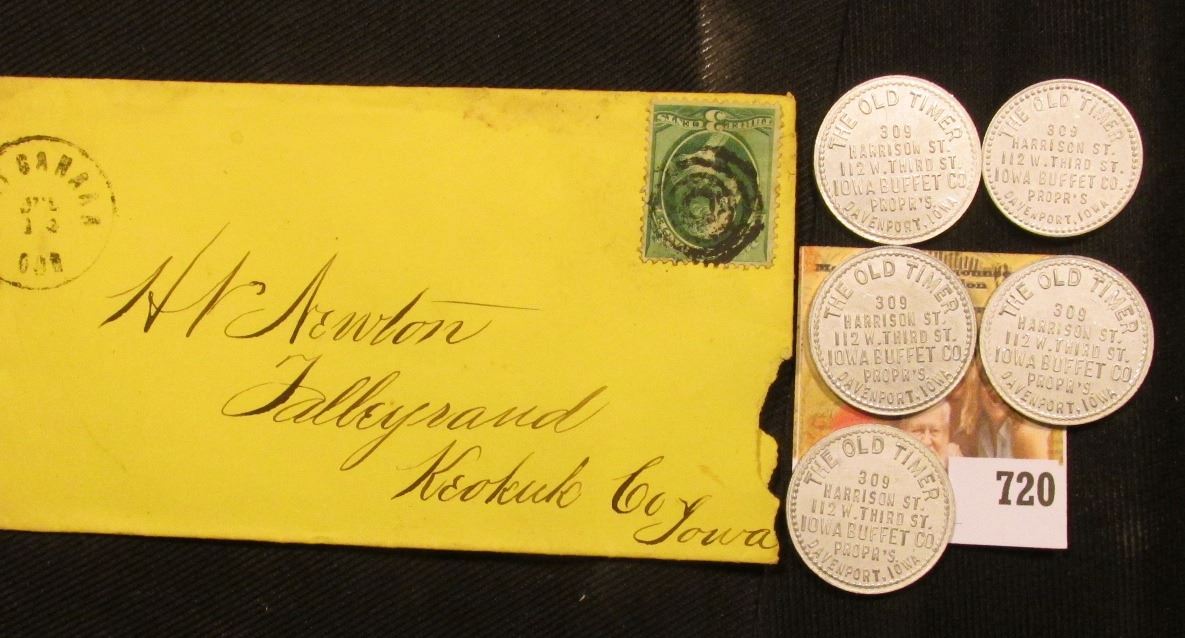 CANAAN
JUL
12
CON
3
H N Newton
Talleyrand
Keokuk Co
Iowa
THE OLD TIMER
309
HARRISON ST.
112 W. THIRD ST.
IOWA BUFFET CO.
PROPR'S.
DAVENPORT, IOWA
THE OLD TIMER
309
HARRISON ST.
112 W. THIRD ST.
IOWA BUFFET CO.
PROPR'S
DAVENPORT, IOWA
THE OLD TIMER
309
HARRISON ST.
112 W. THIRD ST.
IOWA BUFFET CO.
PROPR'S.
DAVENPORT, IOWA
THE OLD TIMER
309
HARRISON ST.
112 W. THIRD ST.
IOWA BUFFET CO.
PROPR'S.
DAVENPORT, IOWA
THE OLD TIMER
309
HARRISON ST.
112 W. THIRD ST.
IOWA BUFFET CO.
PROPR'S.
DAVENPORT, IOWA
720